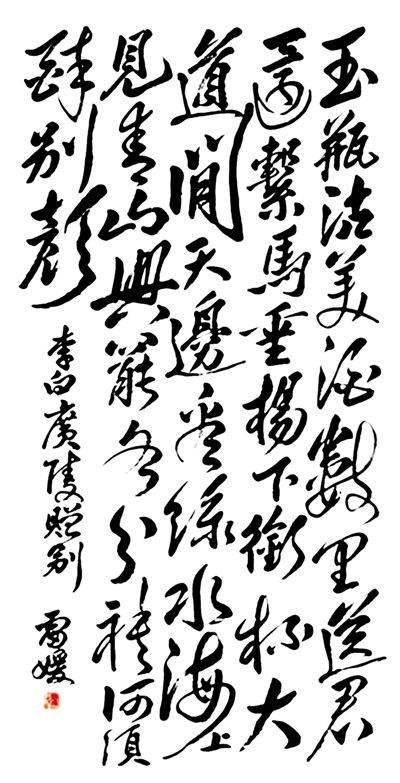 玉瓶沽美酒數里送君
還繫馬垂楊下銜杯大
道閒天邊看綠水海上
見青山興罷各分袂何須
醉別顏
李白廣陵贈別 雷媛